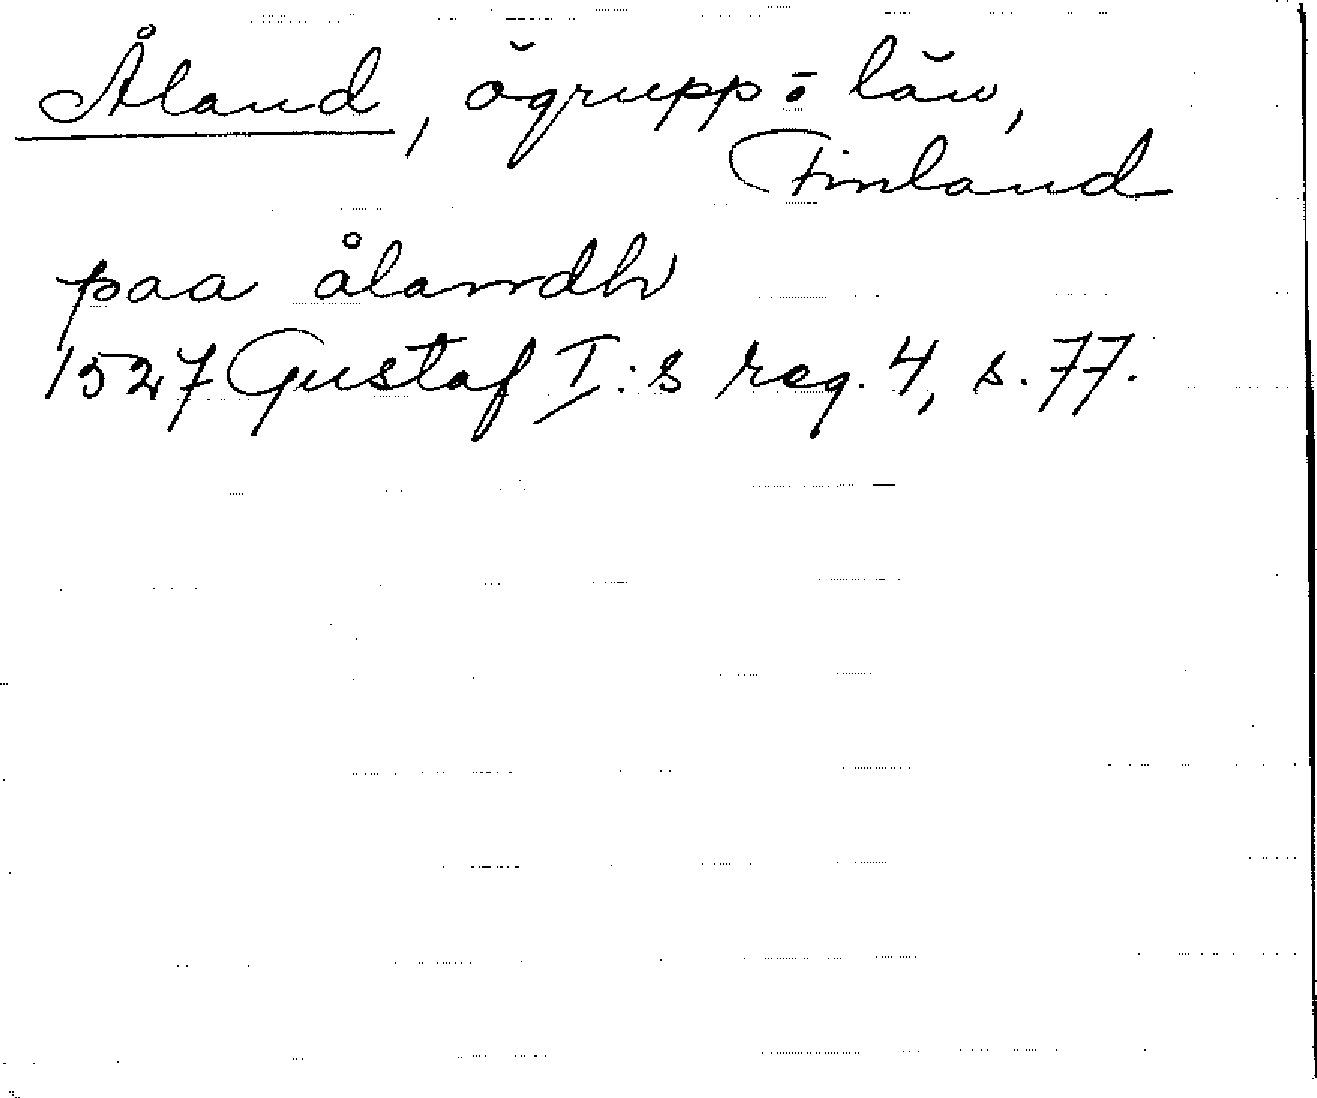 Åland, ögrupp o. län,
Finland
paa ålandh
1527 Gustaf I:s reg. 4, s. 77.